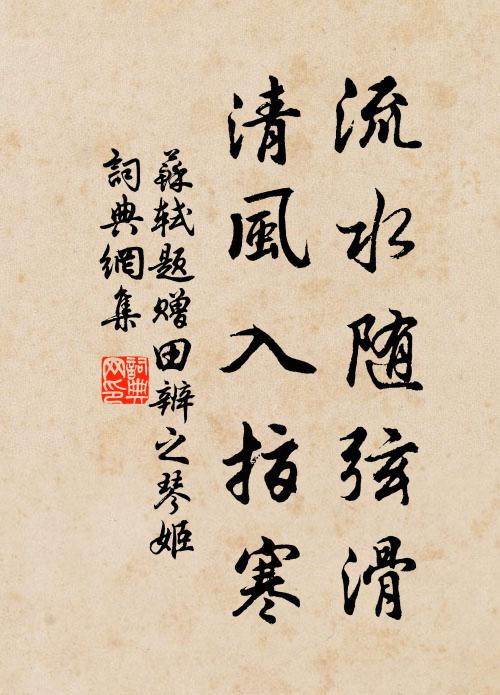 流水随弦滑
清風入指寒
蘇軾題赠田辨之琴姬
詞典網集
詞典网印